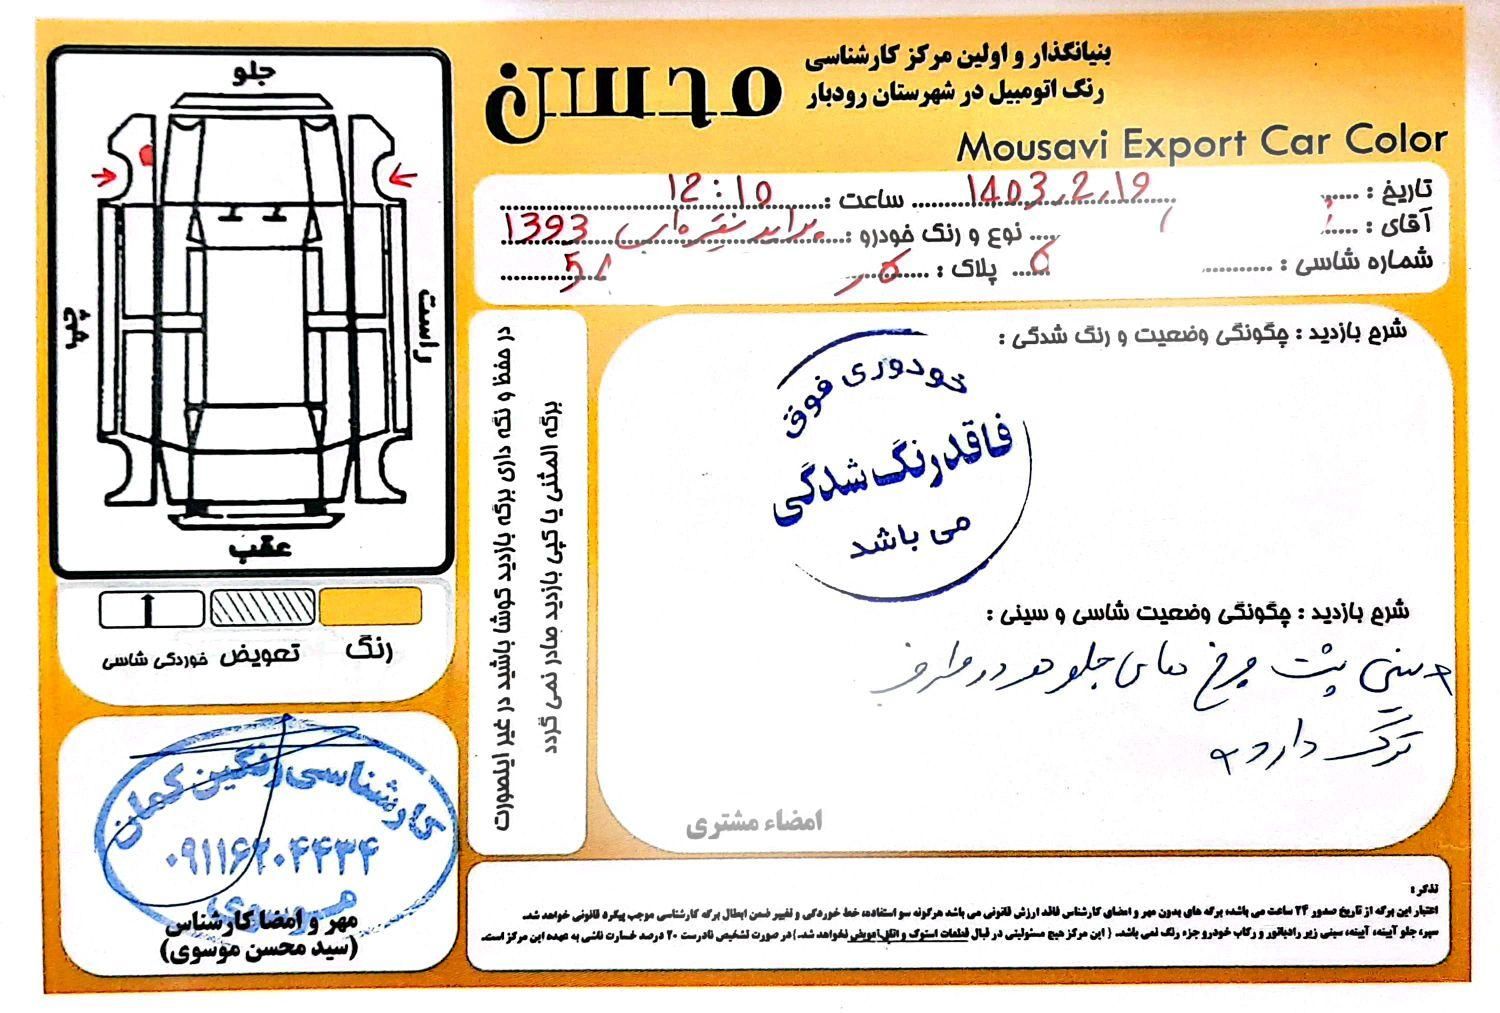 بنیانگذار و اولین مرکز کارشناسی
رنگ اتومبیل در شهرستان رودبار
محسن
Mousavi Export Car Color
تاریخ : 1403,2,19 ساعت : 12:10
آقای : نوع و رنگ خودرو : پراید نقره‌ای 1393
شماره شاسی : پلاک :
جلو
راست
چپ
عقب
رنگ تعویض خوردگی شاسی
در حفظ و نگه داری برگه بازدید کوشا باشید در غیر اینصورت
برگه المثنی یا کپی بازدید صادر نمی گردد
شرح بازدید : چگونگی وضعیت و رنگ شدگی :
خودوری فوق
فاقد رنگ شدگی
می باشد
شرح بازدید : چگونگی وضعیت شاسی و سینی :
سینی پشت چرخ های جلو هر دو طرف
ترک دارد
امضاء مشتری
کارشناسی رنگین کمان
۰۹۱۱۶۲۰۴۴۳۴
موسوی
مهر و امضا کارشناس
(سید محسن موسوی)
تذکر :
اعتبار این برگه از تاریخ صدور ۲۴ ساعت می باشد، برگه های بدون مهر و امضای کارشناس فاقد ارزش قانونی می باشد هرگونه سو استفاده، خط خوردگی و تغییر ضمن ابطال برگه کارشناسی موجب پیگرد قانونی خواهد شد.
سپر، جلو آیینه، آیینه، سینی زیر رادیاتور و رکاب خودرو جزء رنگ نمی باشد. ( این مرکز هیچ مسئولیتی در قبال قطعات استوک و اتاق تعویض نخواهد شد. ) در صورت تشخیص نادرست ۲۰ درصد خسارت ناشی به عهده این مرکز است.